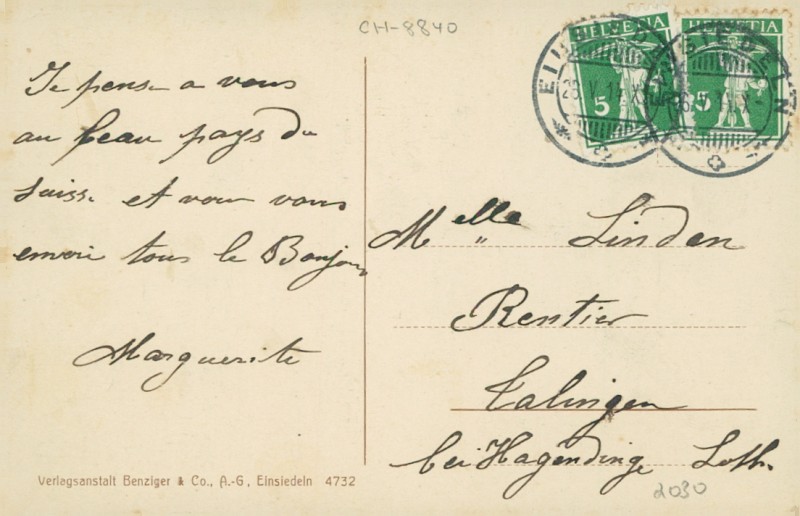 CH-8840
HELVETIA
HELVETIA
5
5
EINSIEDELN
EINSIEDELN
Je pense a vous
au beau pays du
Suisse et vous
envoi tous le Bonjour
Marguerite
Melle Linden
Rentier
Talingen
bei Hagendinge Loth.
2030
Verlagsanstalt Benziger & Co., A.-G, Einsiedeln 4732